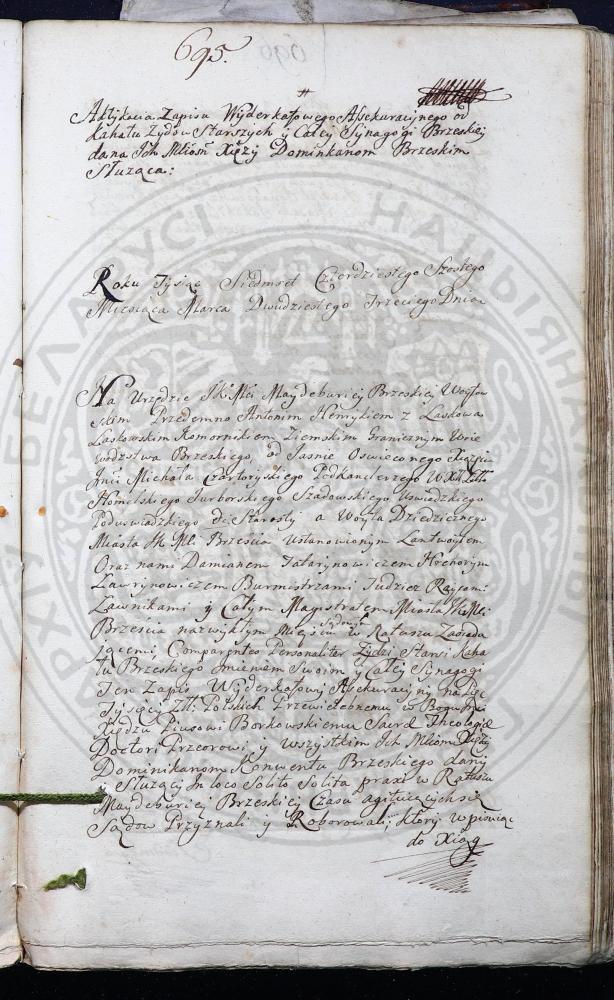 695.
Aktykacia Zapisu Wyderkafowego Assekuracyjnego od
Kahału Zydow Starszych y Całey Synagogi Brzeskiey
dana Ich Młiom Xięzy Dominikanom Brzeskim
Służąca:
Roku Tysiąc Siedmset Czterdziestego Szostego
Miesiąca Marca Dwudziestego Trzeciego Dnia
Na Urzędzie JKMci Maydeburiey Brzeskiey Woytow
skim Przedemno Antonim Henrykiem z Laskowa
Laskowskim Komornikiem Ziemskim Granicznym Woie
wodztwa Brzeskiego, od Jasnie Oswieconego Xiążęcia
Jmci Michała Czartoryskiego Podkanclerzego WXLitto
Homelskiego Jurborskiego Szadowskiego Uswiadzkiego
Poduswiadzkiego &c. Starosty a Woyta Dziedzicznego
Miasta JKMci Brzescia Ustanowionym Lantwoytem
Oraz nami Damianem Tatarynowiczem Hrehorym
Ławrynowiczem Burmistrzami Tudziez Raycami
Ławnikami y Całym Magistratem Miasta JKMci
Brzescia nazwykłym Mieyscu Sądowym w Ratuszu Zasiada
iącemi, Comparentes Personaliter Zydzi Starsi Kaha
łu Brzeskiego Imieniem Swoim y Całey Synagogi
Ten Zapis Wyderkafowy Assekuracyiny na Pięc
Tysięcy Złt: Polskich Przewielebnemu w Bogu Jmci
Xiędzu Piusowi Borkowskiemu Sacræ Theologiæ
Doctori Przeorowi, y wszystkim Ich Młiom Xięzy
Dominikanom Konwentu Brzeskiego dany
y Służący In loco Solito Solita praxi w Ratuszu
Maydeburiey Brzeskiey Czasu agituiących się
Sądow Przyznali y Roborowali, ktory wpisuiąc
do Xiąg